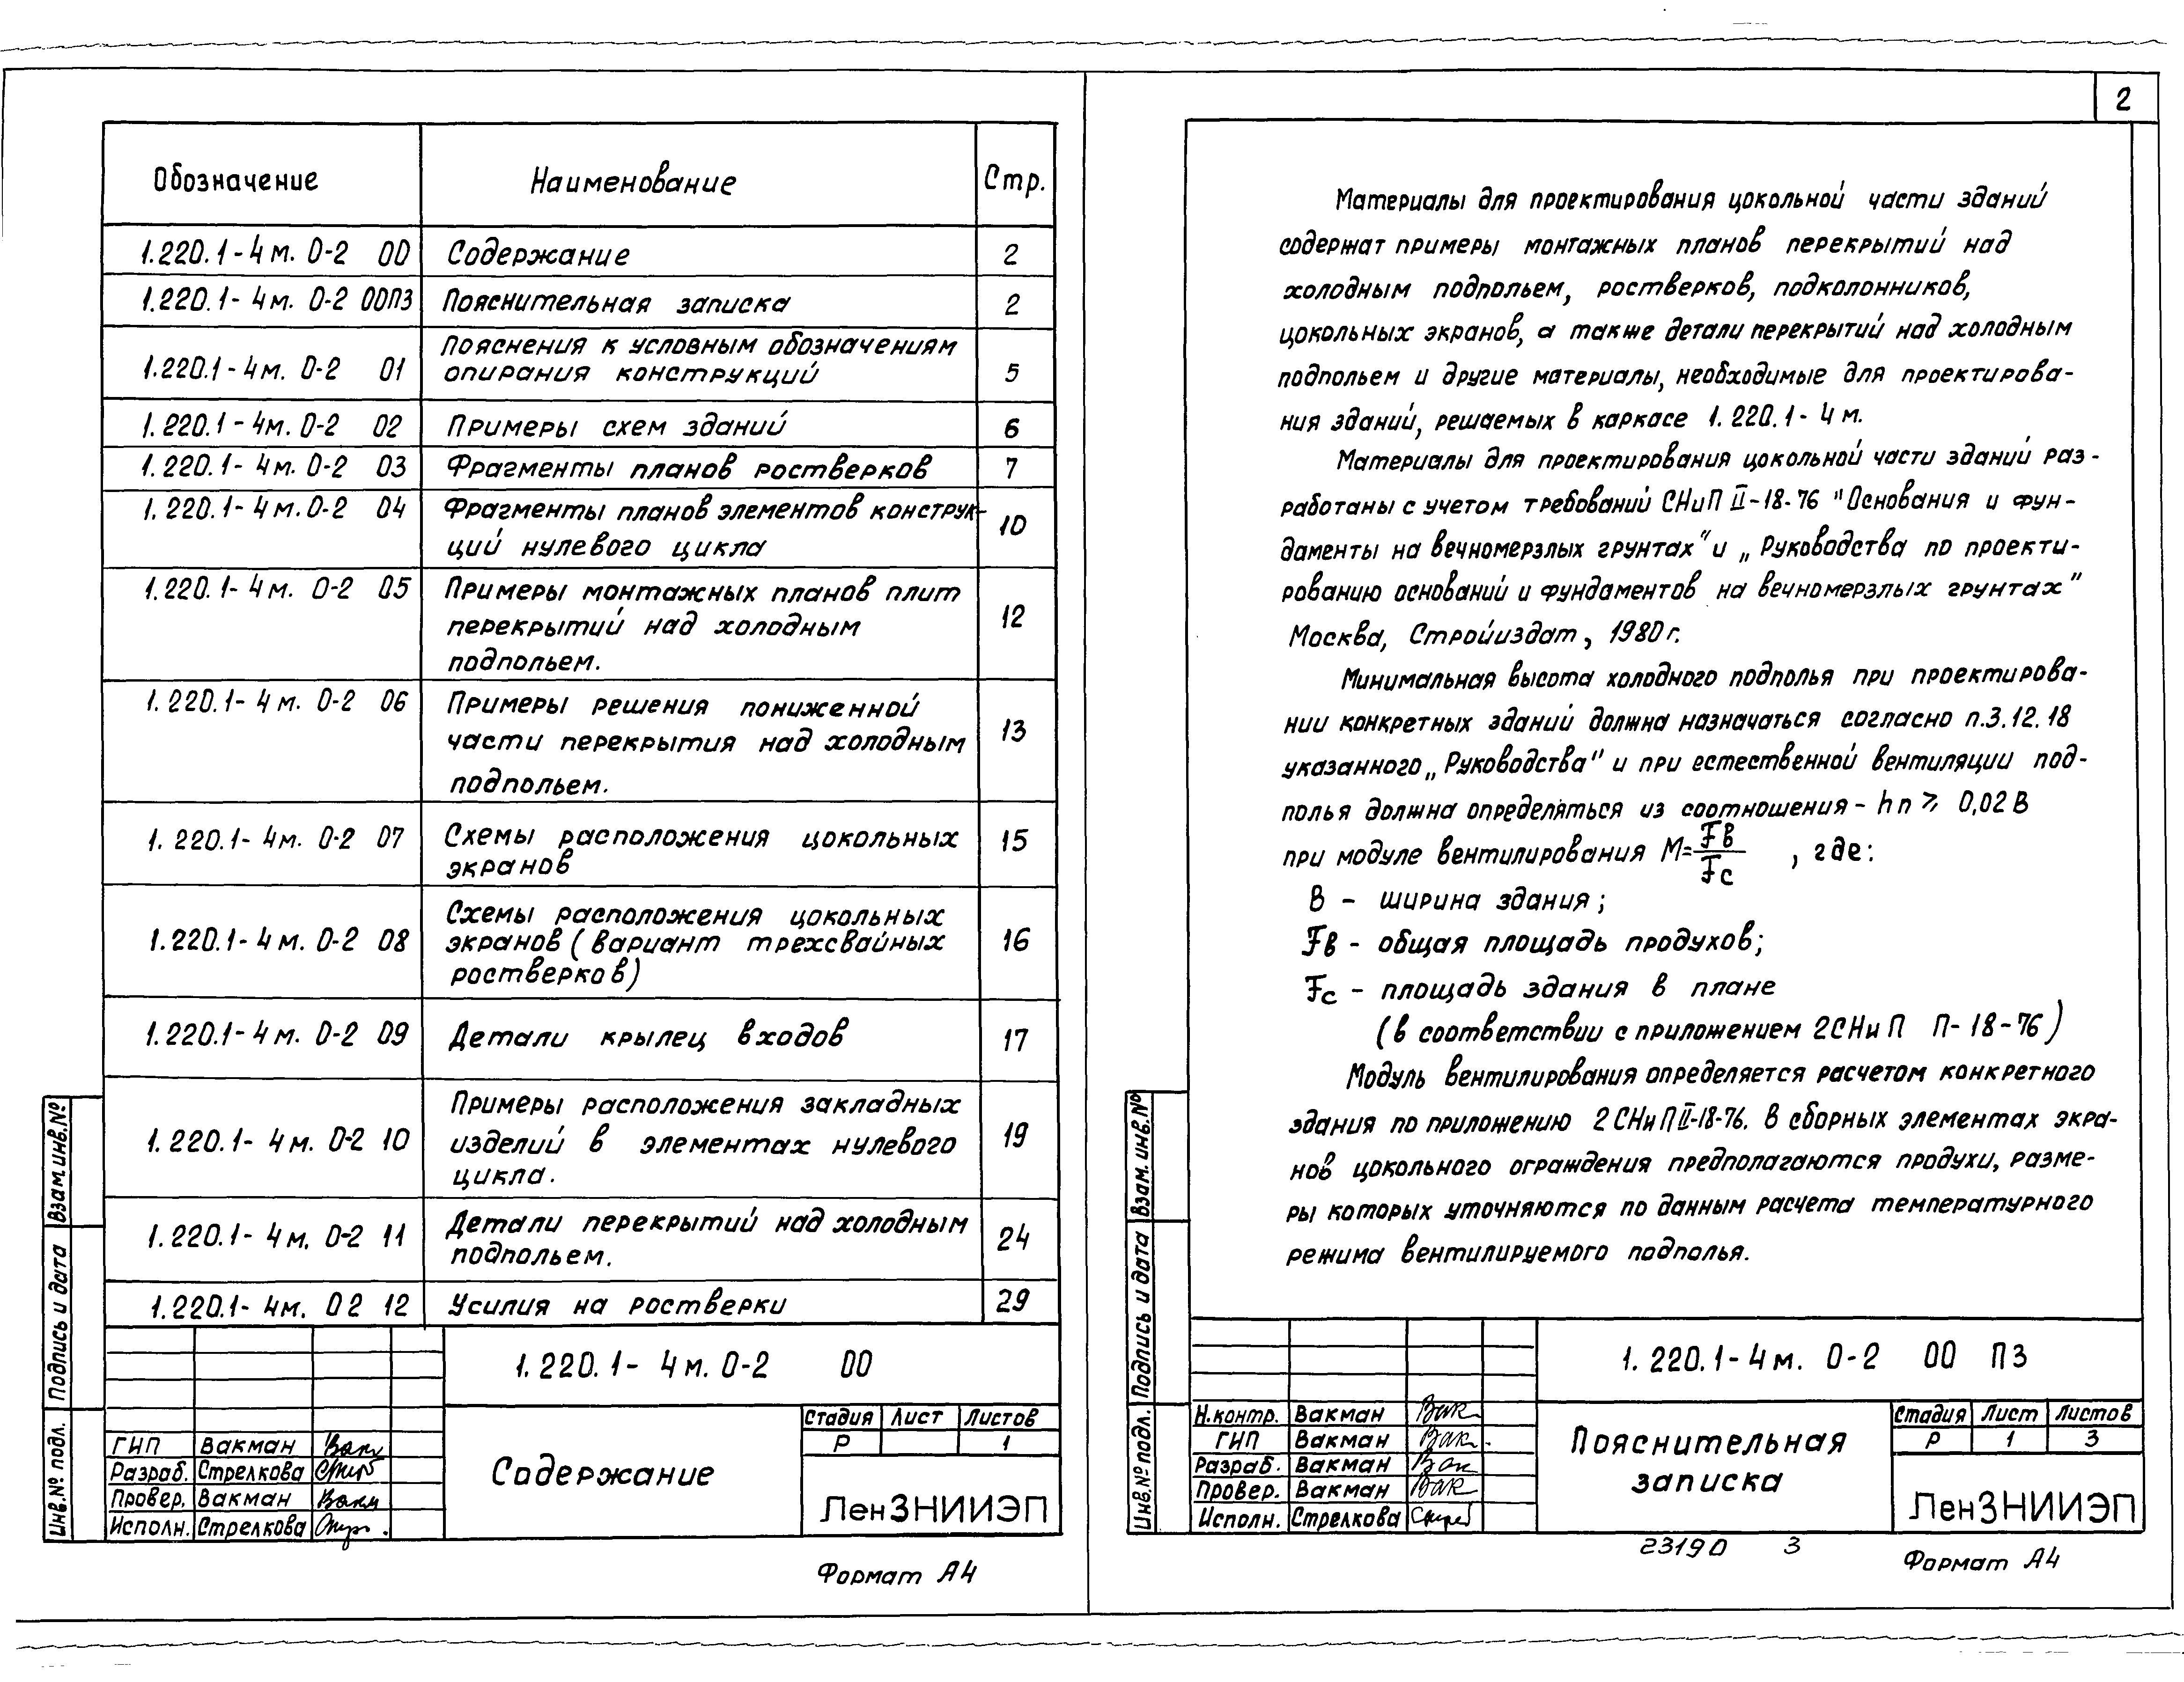 Обозначение Наименование Стр.
1.220.1-4м. 0-2 00 Содержание 2
1.220.1-4м. 0-2 00ПЗ Пояснительная записка 2
Пояснения к условным обозначениям
1.220.1-4м. 0-2 01 опирания конструкций 5
1.220.1-4м. 0-2 02 Примеры схем зданий 6
1.220.1-4м. 0-2 03 Фрагменты планов ростверков 7
1.220.1-4м. 0-2 04 Фрагменты планов элементов конструк- 10
ций нулевого цикла
1.220.1-4м. 0-2 05 Примеры монтажных планов плит
перекрытий над холодным 12
подпольем.
1.220.1-4м. 0-2 06 Примеры решения пониженной
части перекрытия над холодным 13
подпольем.
1.220.1-4м. 0-2 07 Схемы расположения цокольных 15
экранов
Схемы расположения цокольных
1.220.1-4м. 0-2 08 экранов (вариант трехсвайных 16
ростверков)
1.220.1-4м. 0-2 09 Детали крылец входов 17
Примеры расположения закладных
1.220.1-4м. 0-2 10 изделий в элементах нулевого 19
цикла.
1.220.1-4м. 0-2 11 Детали перекрытий над холодным 24
подпольем.
1.220.1-4м. 0 2 12 Усилия на ростверки 29
1.220.1-4м. 0-2 00
Стадия Лист Листов
Р 1
ГИП Вакман
Разраб. Стрелкова
Провер. Вакман
Исполн. Стрелкова
Содержание
ЛенЗНИИЭП
Взам.инв.№
Подпись и дата
Инв.№ подл.
Формат А4
2
Материалы для проектирования цокольной части зданий
содержат примеры монтажных планов перекрытий над
холодным подпольем, ростверков, подколонников,
цокольных экранов, а также детали перекрытий над холодным
подпольем и другие материалы, необходимые для проектирова-
ния зданий, решаемых в каркасе 1.220.1-4м.
Материалы для проектирования цокольной части зданий раз-
работаны с учетом требований СНиП II-18-76 "Основания и фун-
даменты на вечномерзлых грунтах" и „Руководства по проекти-
рованию оснований и фундаментов на вечномерзлых грунтах"
Москва, Стройиздат, 1980г.
Минимальная высота холодного подполья при проектирова-
нии конкретных зданий должна назначаться согласно п.3.12.18
указанного „Руководства" и при естественной вентиляции под-
полья должна определяться из соотношения - hп ⩾ 0,02 В
при модуле вентилирования М=Fв/Fс , где:
В - ширина здания;
Fв - общая площадь продухов;
Fс - площадь здания в плане
(в соответствии с приложением 2СНиП П-18-76)
Модуль вентилирования определяется расчетом конкретного
здания по приложению 2 СНиП II-18-76. В сборных элементах экра-
нов цокольного ограждения предполагаются продухи, разме-
ры которых уточняются по данным расчета температурного
режима вентилируемого подполья.
1.220.1-4м. 0-2 00 ПЗ
Н.контр. Вакман
ГИП Вакман
Разраб. Вакман
Провер. Вакман
Исполн. Стрелкова
Пояснительная
записка
Стадия Лист Листов
Р 1 3
ЛенЗНИИЭП
Взам.инв.№
Подпись и дата
Инв.№ подл.
23190 3
Формат А4